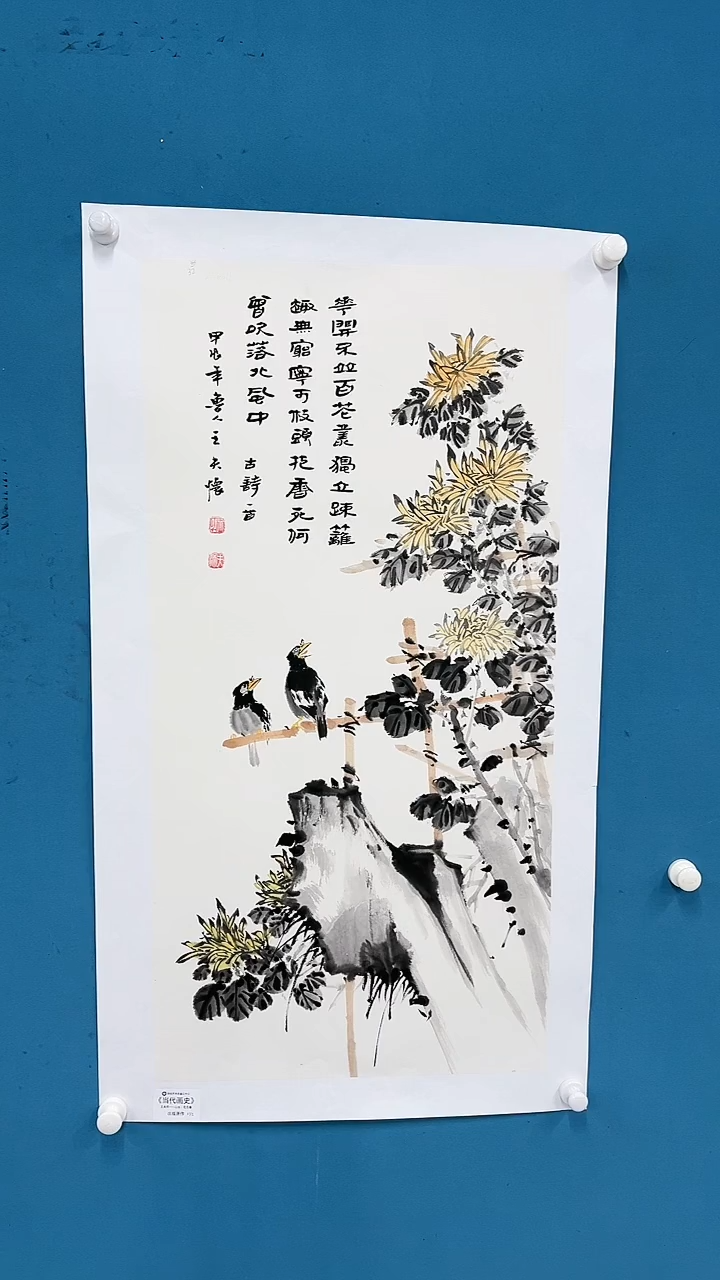 華開不竝百花叢獨立疎籬
趣無窮寧可枝頭抱香死何
曾吹落北風中 古詩一首
甲辰年魯人王天懷
《当代画史》